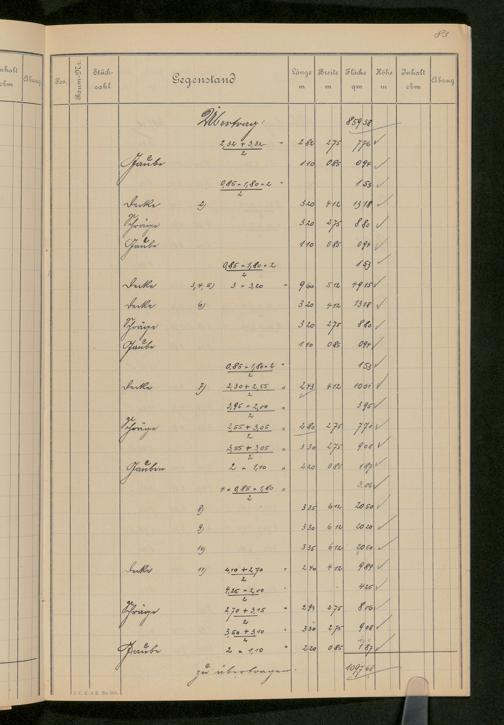 83
Inhalt cbm Abzug
Pos. Raum-Nr. Stückzahl Gegenstand Länge m Breite m Fläche qm Höhe m Inhalt cbm Abzug
Übertrag: 859 38
2,32 + 3,32 / 2 = 2 82 2 75 7 76
Gaube 1 10 0 85 0 94
0,85 × 1,80 × 2 / 2 1 53
Decke 2) 3 20 4 12 13 18
Schräge 3 20 2 75 8 80
Gaube 1 10 0 85 0 94
0,85 × 1,80 × 2 / 2 1 53
Decke 3,4,5) 3 × 3,20 = 9 60 5 12 49 15
Decke 6) 3 20 4 12 13 18
Schräge 3 20 2 75 8 80
Gaube 1 10 0 85 0 94
0,85 × 1,80 × 2 / 2 = 1 53
Decke 7) 2,30 + 2,55 / 2 = 2 43 4 12 10 01
3,95 × 2,00 / 2 3 95
Schräge 2,55 + 3,05 / 2 = 2 80 2 75 7 70
3,55 + 3,05 / 2 = 3 30 2 75 9 08
Gauben 2 × 1,10 = 2 20 0 85 1 87
4 × 0,85 × 1,80 / 2 = 3 06
8) 3 35 6 12 20 50
9) 3 30 6 12 20 20
10) 3 35 6 12 20 50
Decke 11) 4,10 + 2,70 / 2 = 2 40 4 12 9 89
4,25 × 2,00 / 2 4 25
Schräge 2,70 + 3,15 / 2 = 2 93 2 75 8 06
3,50 + 3,10 / 2 = 3 30 2 75 9 08
Gaube 2 × 1,10 = 2 20 0 85 1 87
zu übertragen: